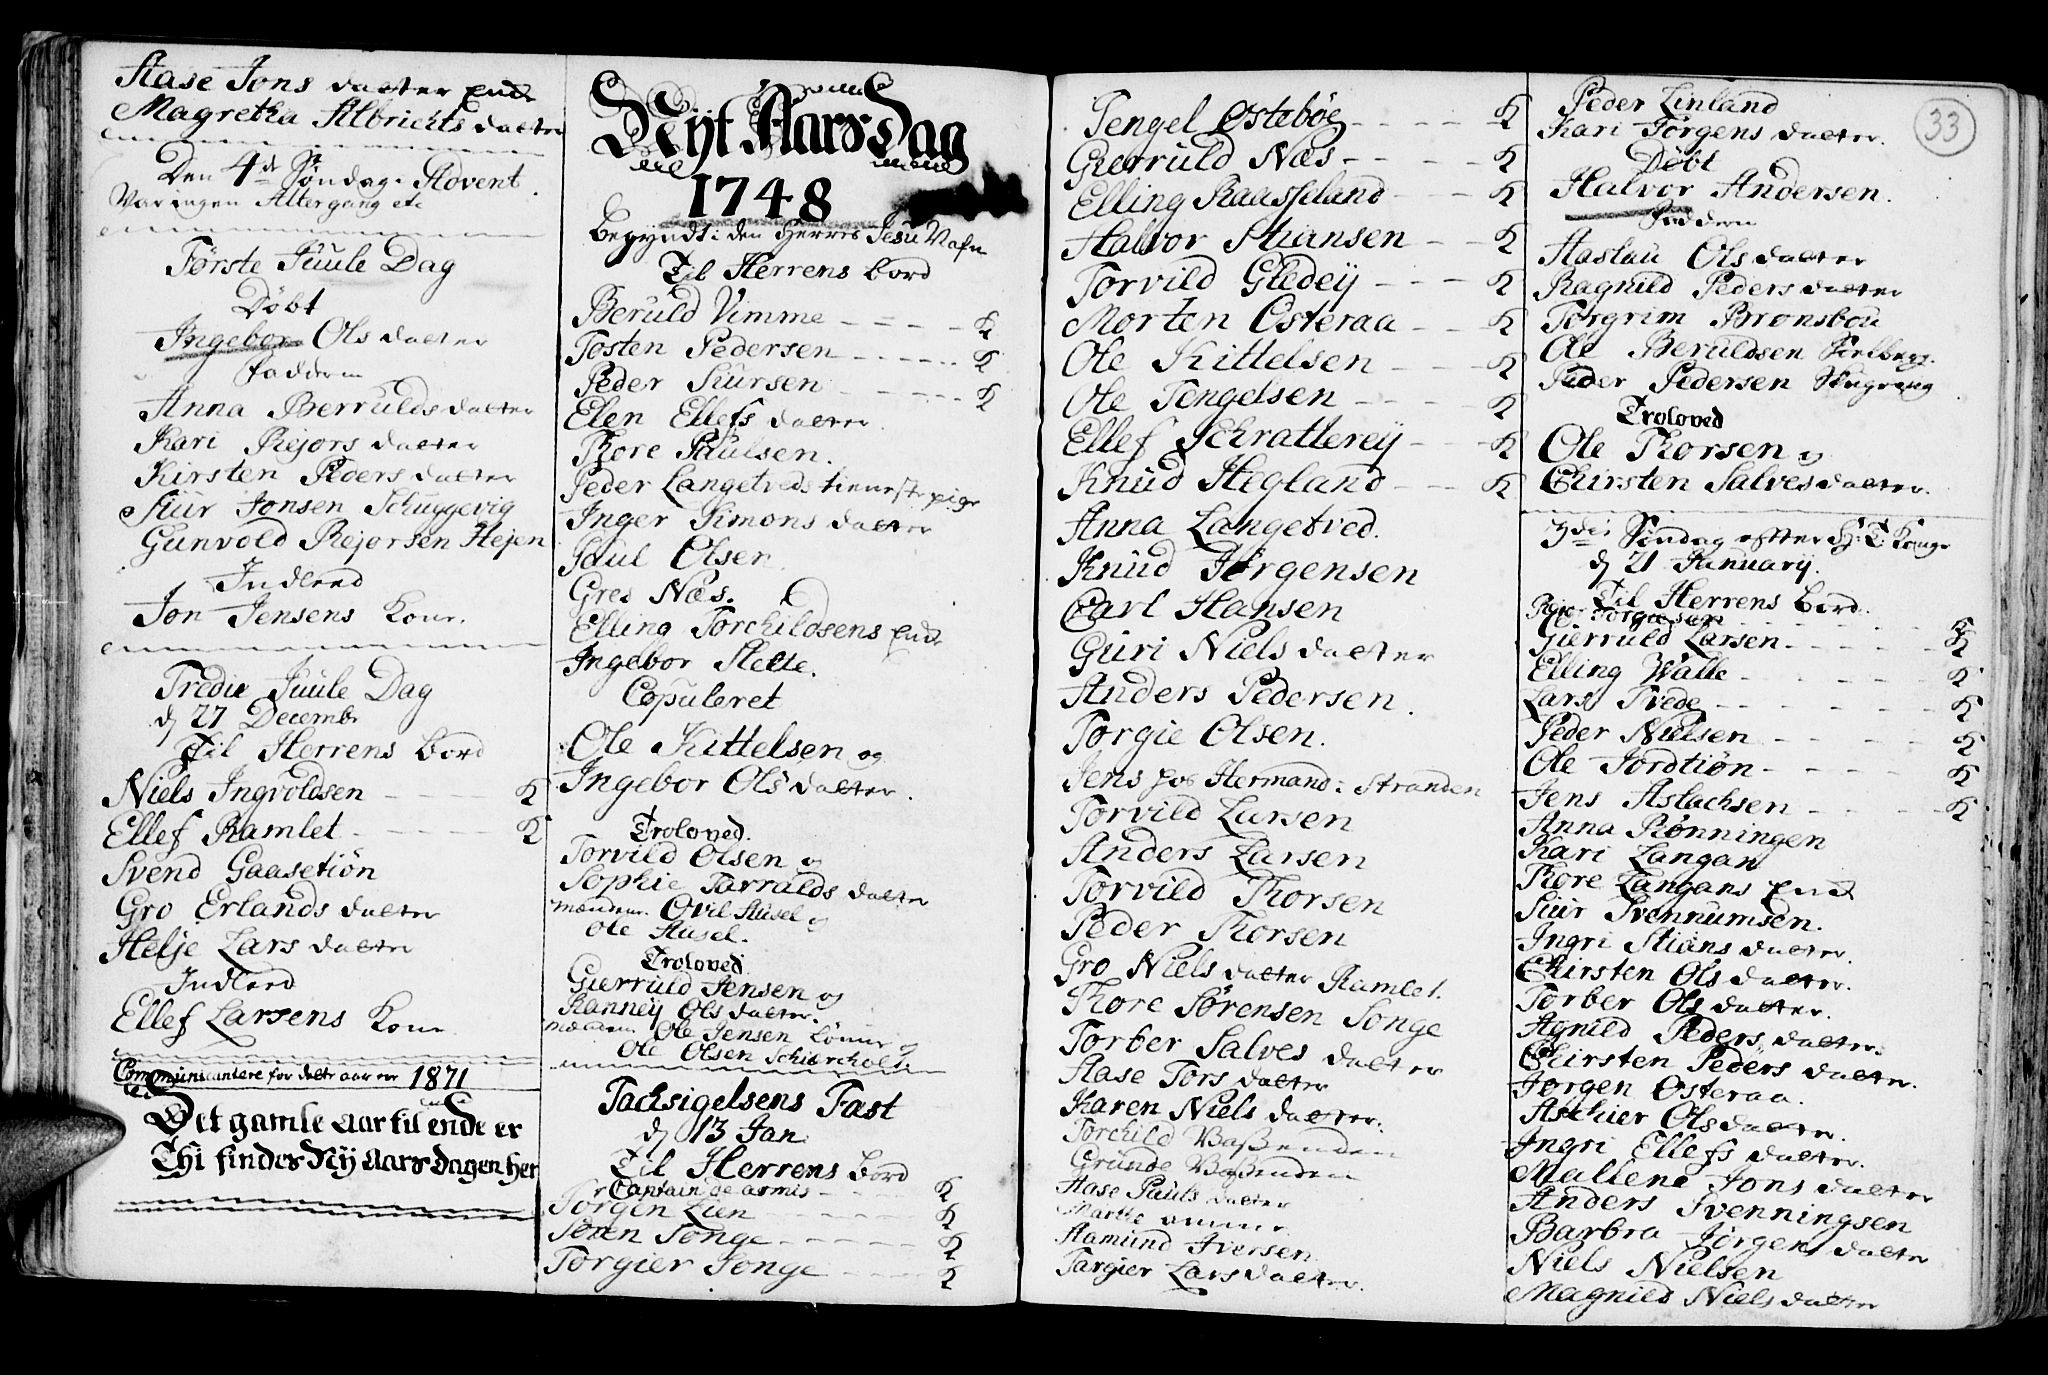 Aase Jons datter Ende
Magretha Albrichts datter
Den 4de Søndag Advent.
Var ingen Altergang etc
Første Juule Dag
Døbt
Ingebor Ols datter
Faddern
Anna Berrulds datter
Kari Rejors datter
Kirsten Peders datter
Siur Jonsen Schuggevig
Gunvold Rejorsen Hejen
Indleed
Jon Jensens Kone.
Tredie Juule Dag
d 27 Decembr
Til Herrens bord
Niels Ingvoldsen K
Ellef Ramlet K
Svend Gaasetiön
Gro Erlands datter
Helje Lars datter
Indleed
Ellef Larsens Kone
Communicantere for dette aar er 1871
Det gamle Aar til ende er
Thi findes Nÿ Aars dagen her
Nÿt Aars Dag
1748
begyndt i den Herres Jesu Nafn
Til Herrens bord
Beruld Vimme K
Tosten Pedersen K
Peder Siursen K
Elen Ellefs datter
Thore Paulsen.
Peder Langetveds tieneste pige
Inger Simons datter
Paul Olsen
Gres Næs.
Elling Torchildsens Ende
Ingebor Slette.
Copuleret
Ole Kittelsen og
Ingebor Ols datter.
Troloved.
Torvild Olsen og
Sophie Tarralds datter
Mændene. Ovil Ausel og
Ole Ausel.
Troloved
Gierruld Jensen og
Ranney Ols datter.
Mændene Ole Jensen Lønne og
Ole Olsen Schiærcholt
Tachsigelsens Fast
d 13 Jan:
Til Herrens bord
Captain de armis K
Jørgen Lien K
Søren Songe K
Torgier Songe K
Tengel Ostebøe K
Gierruld Næs K
Elling Raasseland K
Halvor Stiansen K
Torvild Gledey K
Morten Osteraa K
Ole Kittelsen K
Ole Tengelsen K
Ellef Schratterey K
Knud Hegland K
Anna Langetved.
Knud Jørgensen
Carl Hansen
Guri Niels datter
Anders Pedersen.
Torgie Olsen.
Jens hos Hermand: Stranden
Torvild Larsen
Anders Larsen
Torvild Thorsen
Peder Thorsen
Gro Niels datter Ramlet.
Thore Sørensen Songe
Torber Salves datter
Aase Tors datter
Karen Niels datter.
Torchild Vaßenden
Grunde Vaßenden
Aase Pauls datter
Marthe
Aamund Iversen
Targier Lars datter.
33
Peder Linland
Kari Jørgens datter.
Døbt
Halvor Andersen.
Faddern
Aaslau Ols datter
Ragnild Peders datter
Torgrim Brønsbou
Ole Beruldsen
Peder Pedersen
Troloved
Ole Thorsen og
Chirsten Salves datter.
3die Søndag efter H: T: Konge
d 21 January.
Til Herrens bord.
Torgiersen K
Gierruld Larsen K
Elling Walle K
Lars Tvede K
Peder Nielsen K
Ole Jordtiön K
Jens Aslachsen K
Anna Rönningen
Kari Langan
Thore Langans Ende
Siur Svennumsen.
Ingri Stians datter.
Chirsten Ols datter.
Torber Ols datter.
Agnild Peders datter.
Chirsten Peders datter.
Jørgen Osteraa.
Aschier Ols datter.
Ingri Ellefs datter.
Mallene Jons datter
Anders Svenningsen
Barbra Jørgens datter
Niels Nielsen
Magnild Niels datter